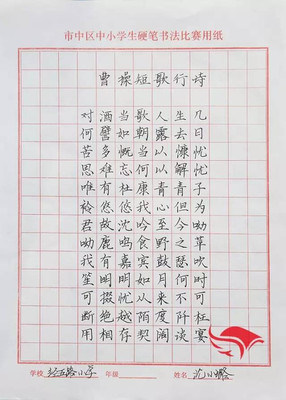 市中区中小学生硬笔书法比赛用纸
曹操短歌行诗
对酒当歌人生几
何譬如朝露去日
苦多慨当以慷忧
思难忘何以解忧
唯有杜康青青子
衿悠悠我心但为
君故沈吟至今呦
呦鹿鸣食野之苹
我有嘉宾鼓瑟吹
笙明明如月何时
可掇忧从来不可
断绝越陌度阡枉
用相存契阔谈宴
学校 经五路小学 年级 姓名